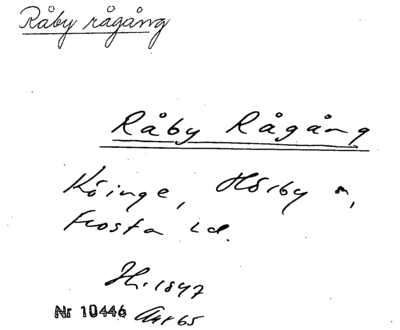 Råby rågång
Råby Rågång
Köinge, Hörby sn,
Frosta hd.
Hr. 1847
Nr 10446